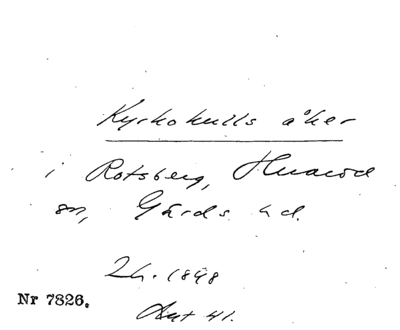 Kyrkokulls åker
i Rotsberg, Huaröd
sn, Gärds hd.
Lh. 1898
Nr 7826.
Akt 41.